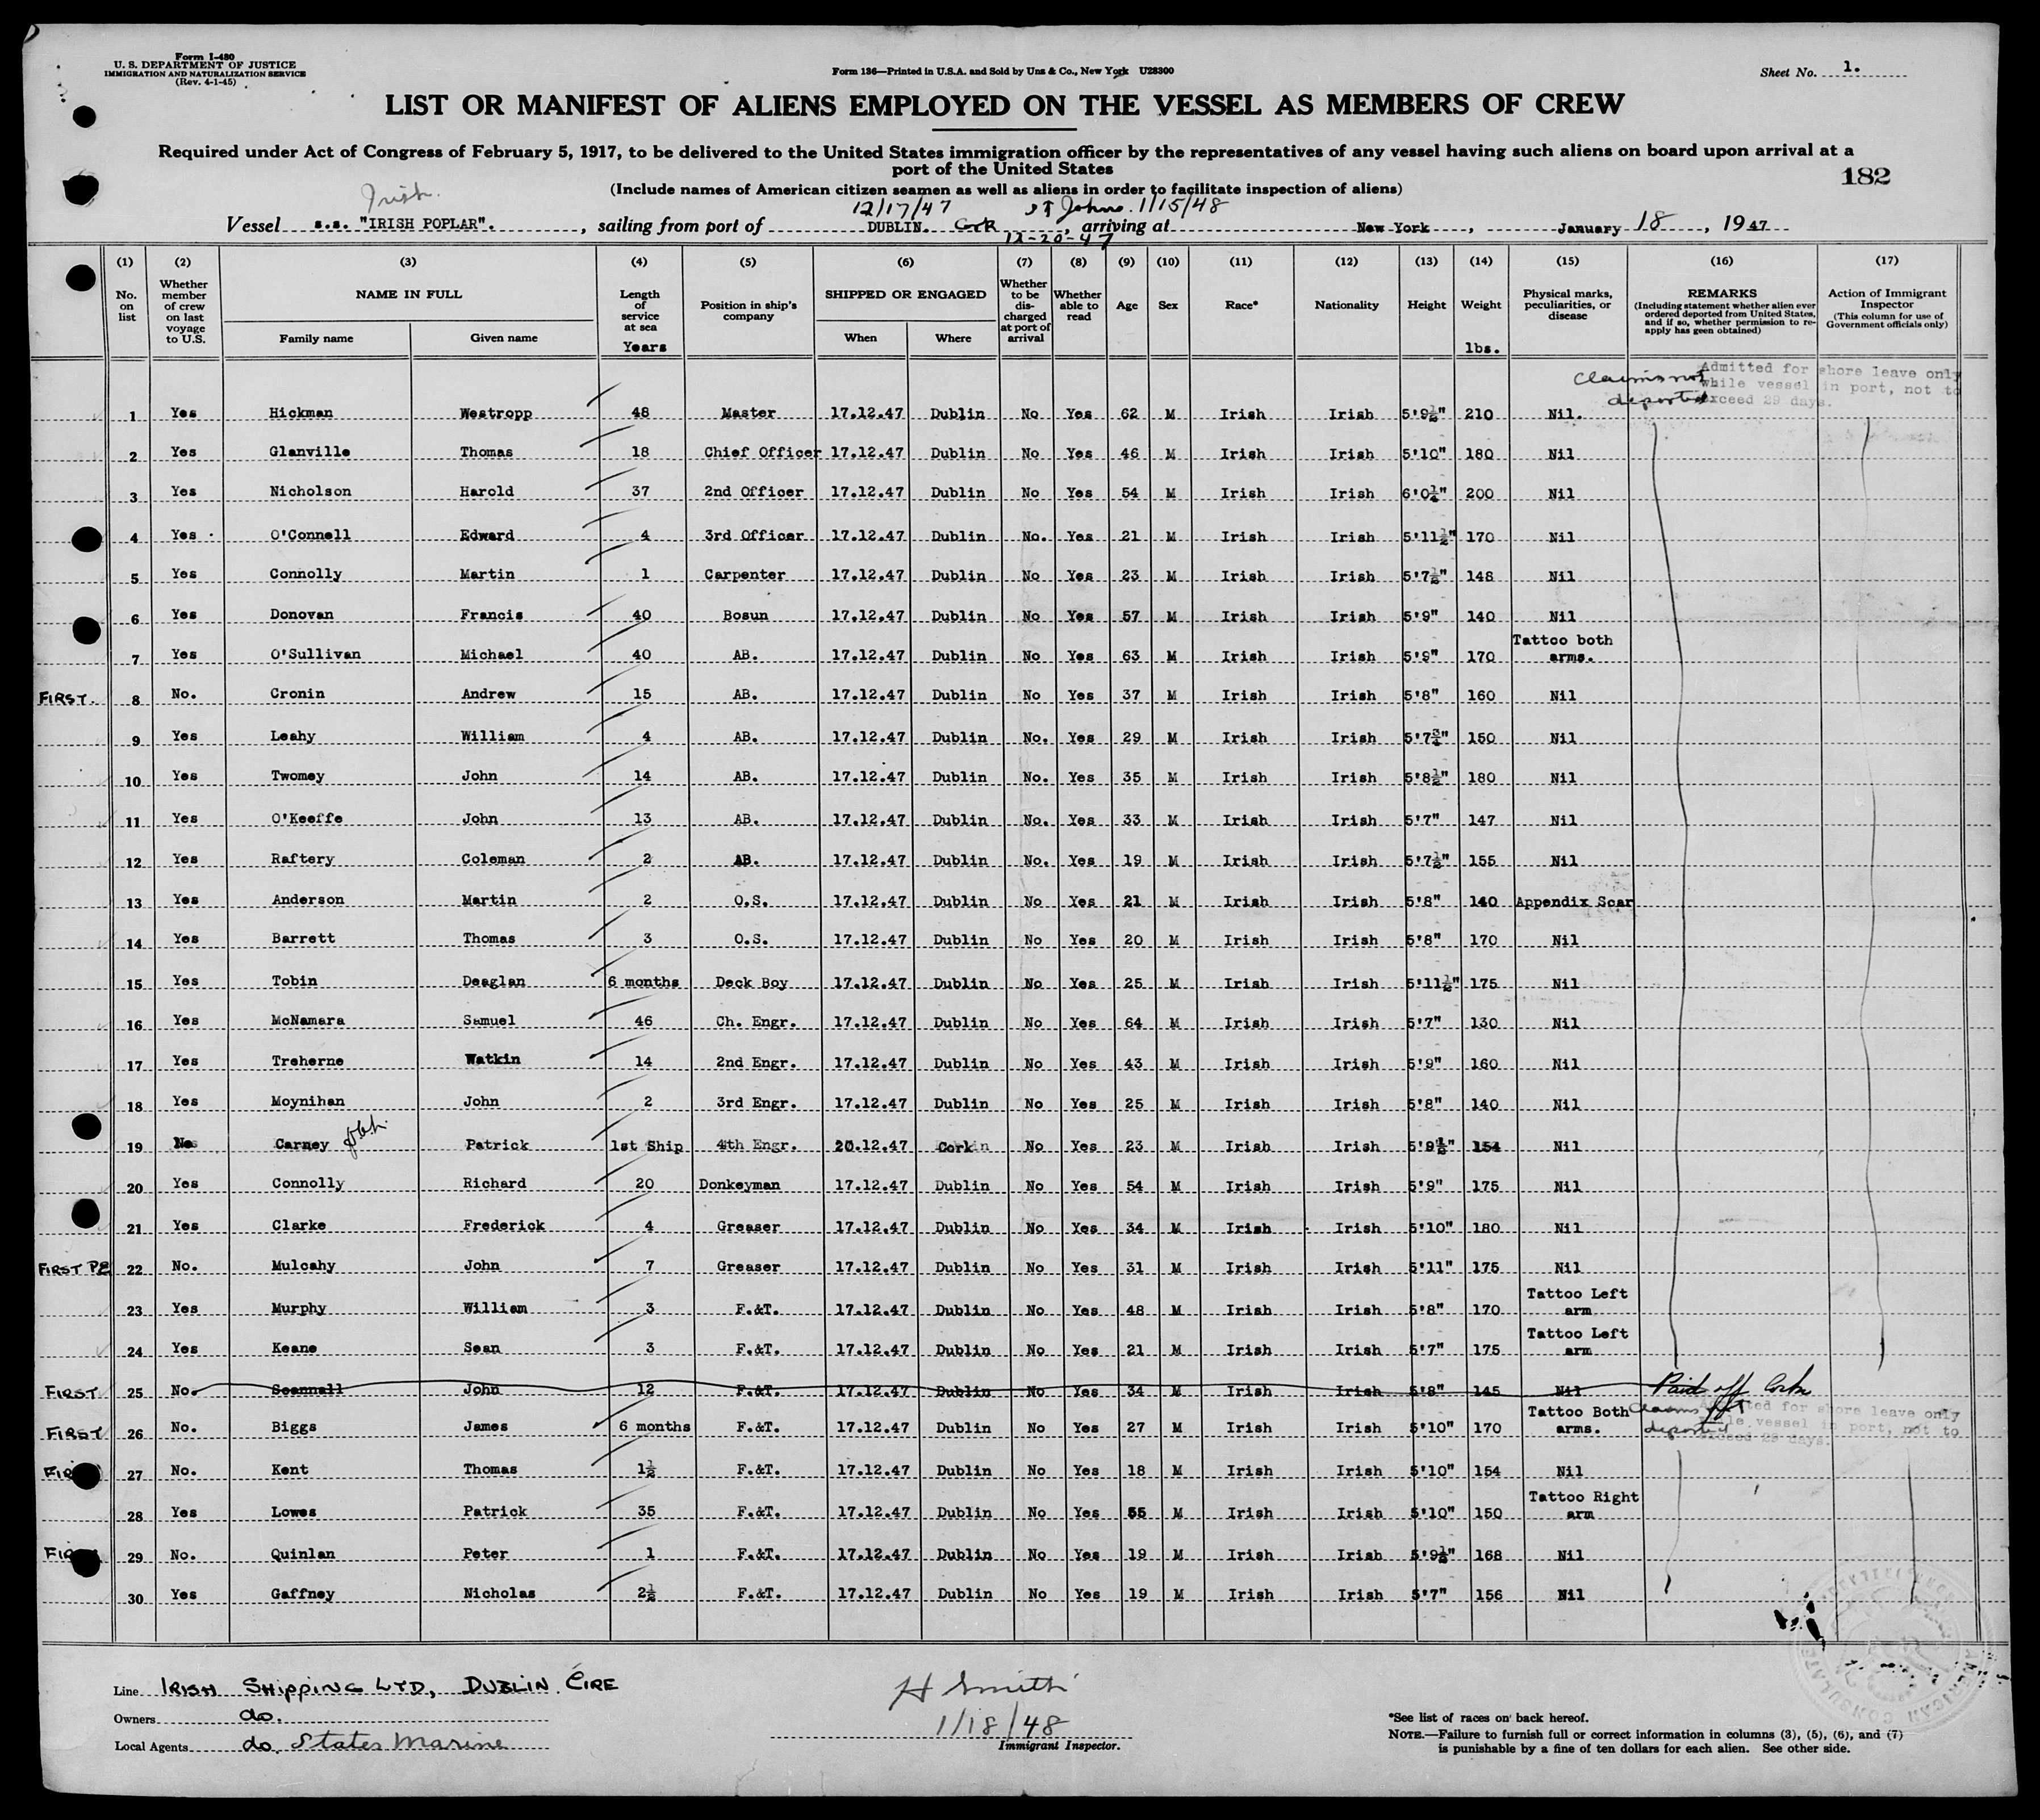 Form I-480
U. S. DEPARTMENT OF JUSTICE
IMMIGRATION AND NATURALIZATION SERVICE
(Rev. 4-1-45)
Form 136—Printed in U.S.A. and Sold by Unz & Co., New York U28300
Sheet No. 1.
LIST OR MANIFEST OF ALIENS EMPLOYED ON THE VESSEL AS MEMBERS OF CREW
Required under Act of Congress of February 5, 1917, to be delivered to the United States immigration officer by the representatives of any vessel having such aliens on board upon arrival at a
port of the United States
182
(Include names of American citizen seamen as well as aliens in order to facilitate inspection of aliens)
Irish. 12/17/47 St Johns. 1/15/48
Vessel s.s. "IRISH POPLAR". , sailing from port of DUBLIN. Cork , arriving at New York , January 18 , 1947
12-20-47
(1) (2) (3) (4) (5) (6) (7) (8) (9) (10) (11) (12) (13) (14) (15) (16) (17)
No. on list | Whether member of crew on last voyage to U.S. | NAME IN FULL Family name Given name | Length of service at sea Years | Position in ship's company | SHIPPED OR ENGAGED When Where | Whether to be discharged at port of arrival | Whether able to read | Age | Sex | Race* | Nationality | Height | Weight lbs. | Physical marks, peculiarities, or disease | REMARKS (Including statement whether alien ever ordered deported from United States, and if so, whether permission to re-apply has geen obtained) | Action of Immigrant Inspector (This column for use of Government officials only)
Claims not deported
Admitted for shore leave only
while vessel in port, not to
exceed 29 days.
1 Yes Hickman Westropp 48 Master 17.12.47 Dublin No Yes 62 M Irish Irish 5'9½" 210 Nil.
2 Yes Glanville Thomas 18 Chief Officer 17.12.47 Dublin No Yes 46 M Irish Irish 5'10" 180 Nil
3 Yes Nicholson Harold 37 2nd Officer 17.12.47 Dublin No Yes 54 M Irish Irish 6'0¼" 200 Nil
4 Yes O'Connell Edward 4 3rd Officer 17.12.47 Dublin No. Yes 21 M Irish Irish 5'11½" 170 Nil
5 Yes Connolly Martin 1 Carpenter 17.12.47 Dublin No Yes 23 M Irish Irish 5'7½" 148 Nil
6 Yes Donovan Francis 40 Bosun 17.12.47 Dublin No Yes 57 M Irish Irish 5'9" 140 Nil
7 Yes O'Sullivan Michael 40 AB. 17.12.47 Dublin No Yes 63 M Irish Irish 5'9" 170 Tattoo both arms.
FIRST. 8 No. Cronin Andrew 15 AB. 17.12.47 Dublin No Yes 37 M Irish Irish 5'8" 160 Nil
9 Yes Leahy William 4 AB. 17.12.47 Dublin No. Yes 29 M Irish Irish 5'7¾" 150 Nil
10 Yes Twomey John 14 AB. 17.12.47 Dublin No. Yes 35 M Irish Irish 5'8½" 180 Nil
11 Yes O'Keeffe John 13 AB. 17.12.47 Dublin No. Yes 33 M Irish Irish 5'7" 147 Nil
12 Yes Raftery Coleman 2 AB. 17.12.47 Dublin No. Yes 19 M Irish Irish 5'7½" 155 Nil
13 Yes Anderson Martin 2 O.S. 17.12.47 Dublin No Yes 21 M Irish Irish 5'8" 140 Appendix Scar
14 Yes Barrett Thomas 3 O.S. 17.12.47 Dublin No Yes 20 M Irish Irish 5'8" 170 Nil
15 Yes Tobin Deaglan 6 months Deck Boy 17.12.47 Dublin No Yes 25 M Irish Irish 5'11½" 175 Nil
16 Yes McNamara Samuel 46 Ch. Engr. 17.12.47 Dublin No Yes 64 M Irish Irish 5'7" 130 Nil
17 Yes Treherne Watkin 14 2nd Engr. 17.12.47 Dublin No Yes 43 M Irish Irish 5'9" 160 Nil
18 Yes Moynihan John 2 3rd Engr. 17.12.47 Dublin No Yes 25 M Irish Irish 5'8" 140 Nil
19 No Carney Patrick 1st Ship 4th Engr. 20.12.47 Cork No Yes 23 M Irish Irish 5'9½" 154 Nil
20 Yes Connolly Richard 20 Donkeyman 17.12.47 Dublin No Yes 54 M Irish Irish 5'9" 175 Nil
21 Yes Clarke Frederick 4 Greaser 17.12.47 Dublin No Yes 34 M Irish Irish 5'10" 180 Nil
FIRST PE 22 No. Mulcahy John 7 Greaser 17.12.47 Dublin No Yes 31 M Irish Irish 5'11" 175 Nil
23 Yes Murphy William 3 F.&T. 17.12.47 Dublin No Yes 48 M Irish Irish 5'8" 170 Tattoo Left arm
24 Yes Keane Sean 3 F.&T. 17.12.47 Dublin No Yes 21 M Irish Irish 5'7" 175 Tattoo Left arm
FIRST 25 No. Scannell John 12 F.&T. 17.12.47 Dublin No Yes 34 M Irish Irish 5'8" 145 Nil Paid off Cork
FIRST 26 No. Biggs James 6 months F.&T. 17.12.47 Dublin No Yes 27 M Irish Irish 5'10" 170 Tattoo Both arms. Claims not deported
Admitted for shore leave only
while vessel in port, not to
exceed 29 days.
FIRST 27 No. Kent Thomas 1½ F.&T. 17.12.47 Dublin No Yes 18 M Irish Irish 5'10" 154 Nil
28 Yes Lowes Patrick 35 F.&T. 17.12.47 Dublin No Yes 55 M Irish Irish 5'10" 150 Tattoo Right arm
FIRST 29 No. Quinlan Peter 1 F.&T. 17.12.47 Dublin No Yes 19 M Irish Irish 5'9½" 168 Nil
30 Yes Gaffney Nicholas 2½ F.&T. 17.12.47 Dublin No Yes 19 M Irish Irish 5'7" 156 Nil
Line IRISH SHIPPING LTD, DUBLIN EIRE
Owners do.
Local Agents do. States Marine
H Smith
1/18/48
Immigrant Inspector.
*See list of races on back hereof.
NOTE.—Failure to furnish full or correct information in columns (3), (5), (6), and (7)
is punishable by a fine of ten dollars for each alien. See other side.
AMERICAN CONSULATE